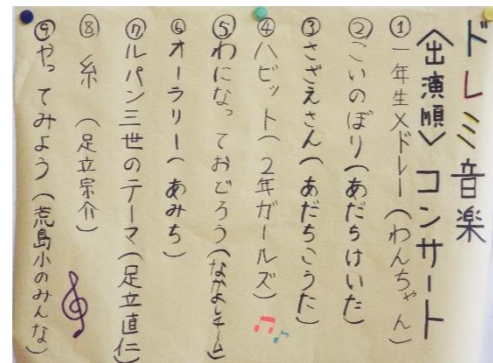 ドレミ音楽
〈出演順〉コンサート
①一年生×ドレー(わんちゃん)
②こいのぼり(あだちけいた)
③さざえさん(あだちこうた)
④ハビット(2年ガールズ)
⑤わになっておどろう(なかよしチーム)
⑥オーラリー(あみち)
⑦ルパン三世のテーマ(足立直仁)
⑧糸 (足立宗介)
⑨やってみよう(荒島小のみんな)